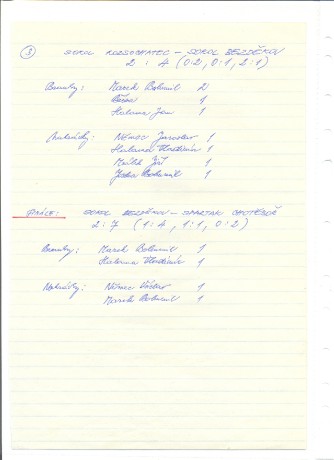 3 SOKOL ROZSOCHATEC - SOKOL BEZDĚKOV
2 : 4 (0:2, 0:1, 2:1)
Branky: Marek Bohumil 2
1
Halama Jan 1
Nahrávky: Němec Jaroslav 1
Halama Vlastimír 1
Jiří 1
Bohumil 1
FINÁLE: SOKOL BEZDĚKOV - SPARTAK CHOTĚBOŘ
2:7 (1:4, 1:1, 0:2)
Branky: Marek Bohumil 1
Halama Vlastimír 1
Nahrávky: Němec Václav 1
Marek Bohumil 1